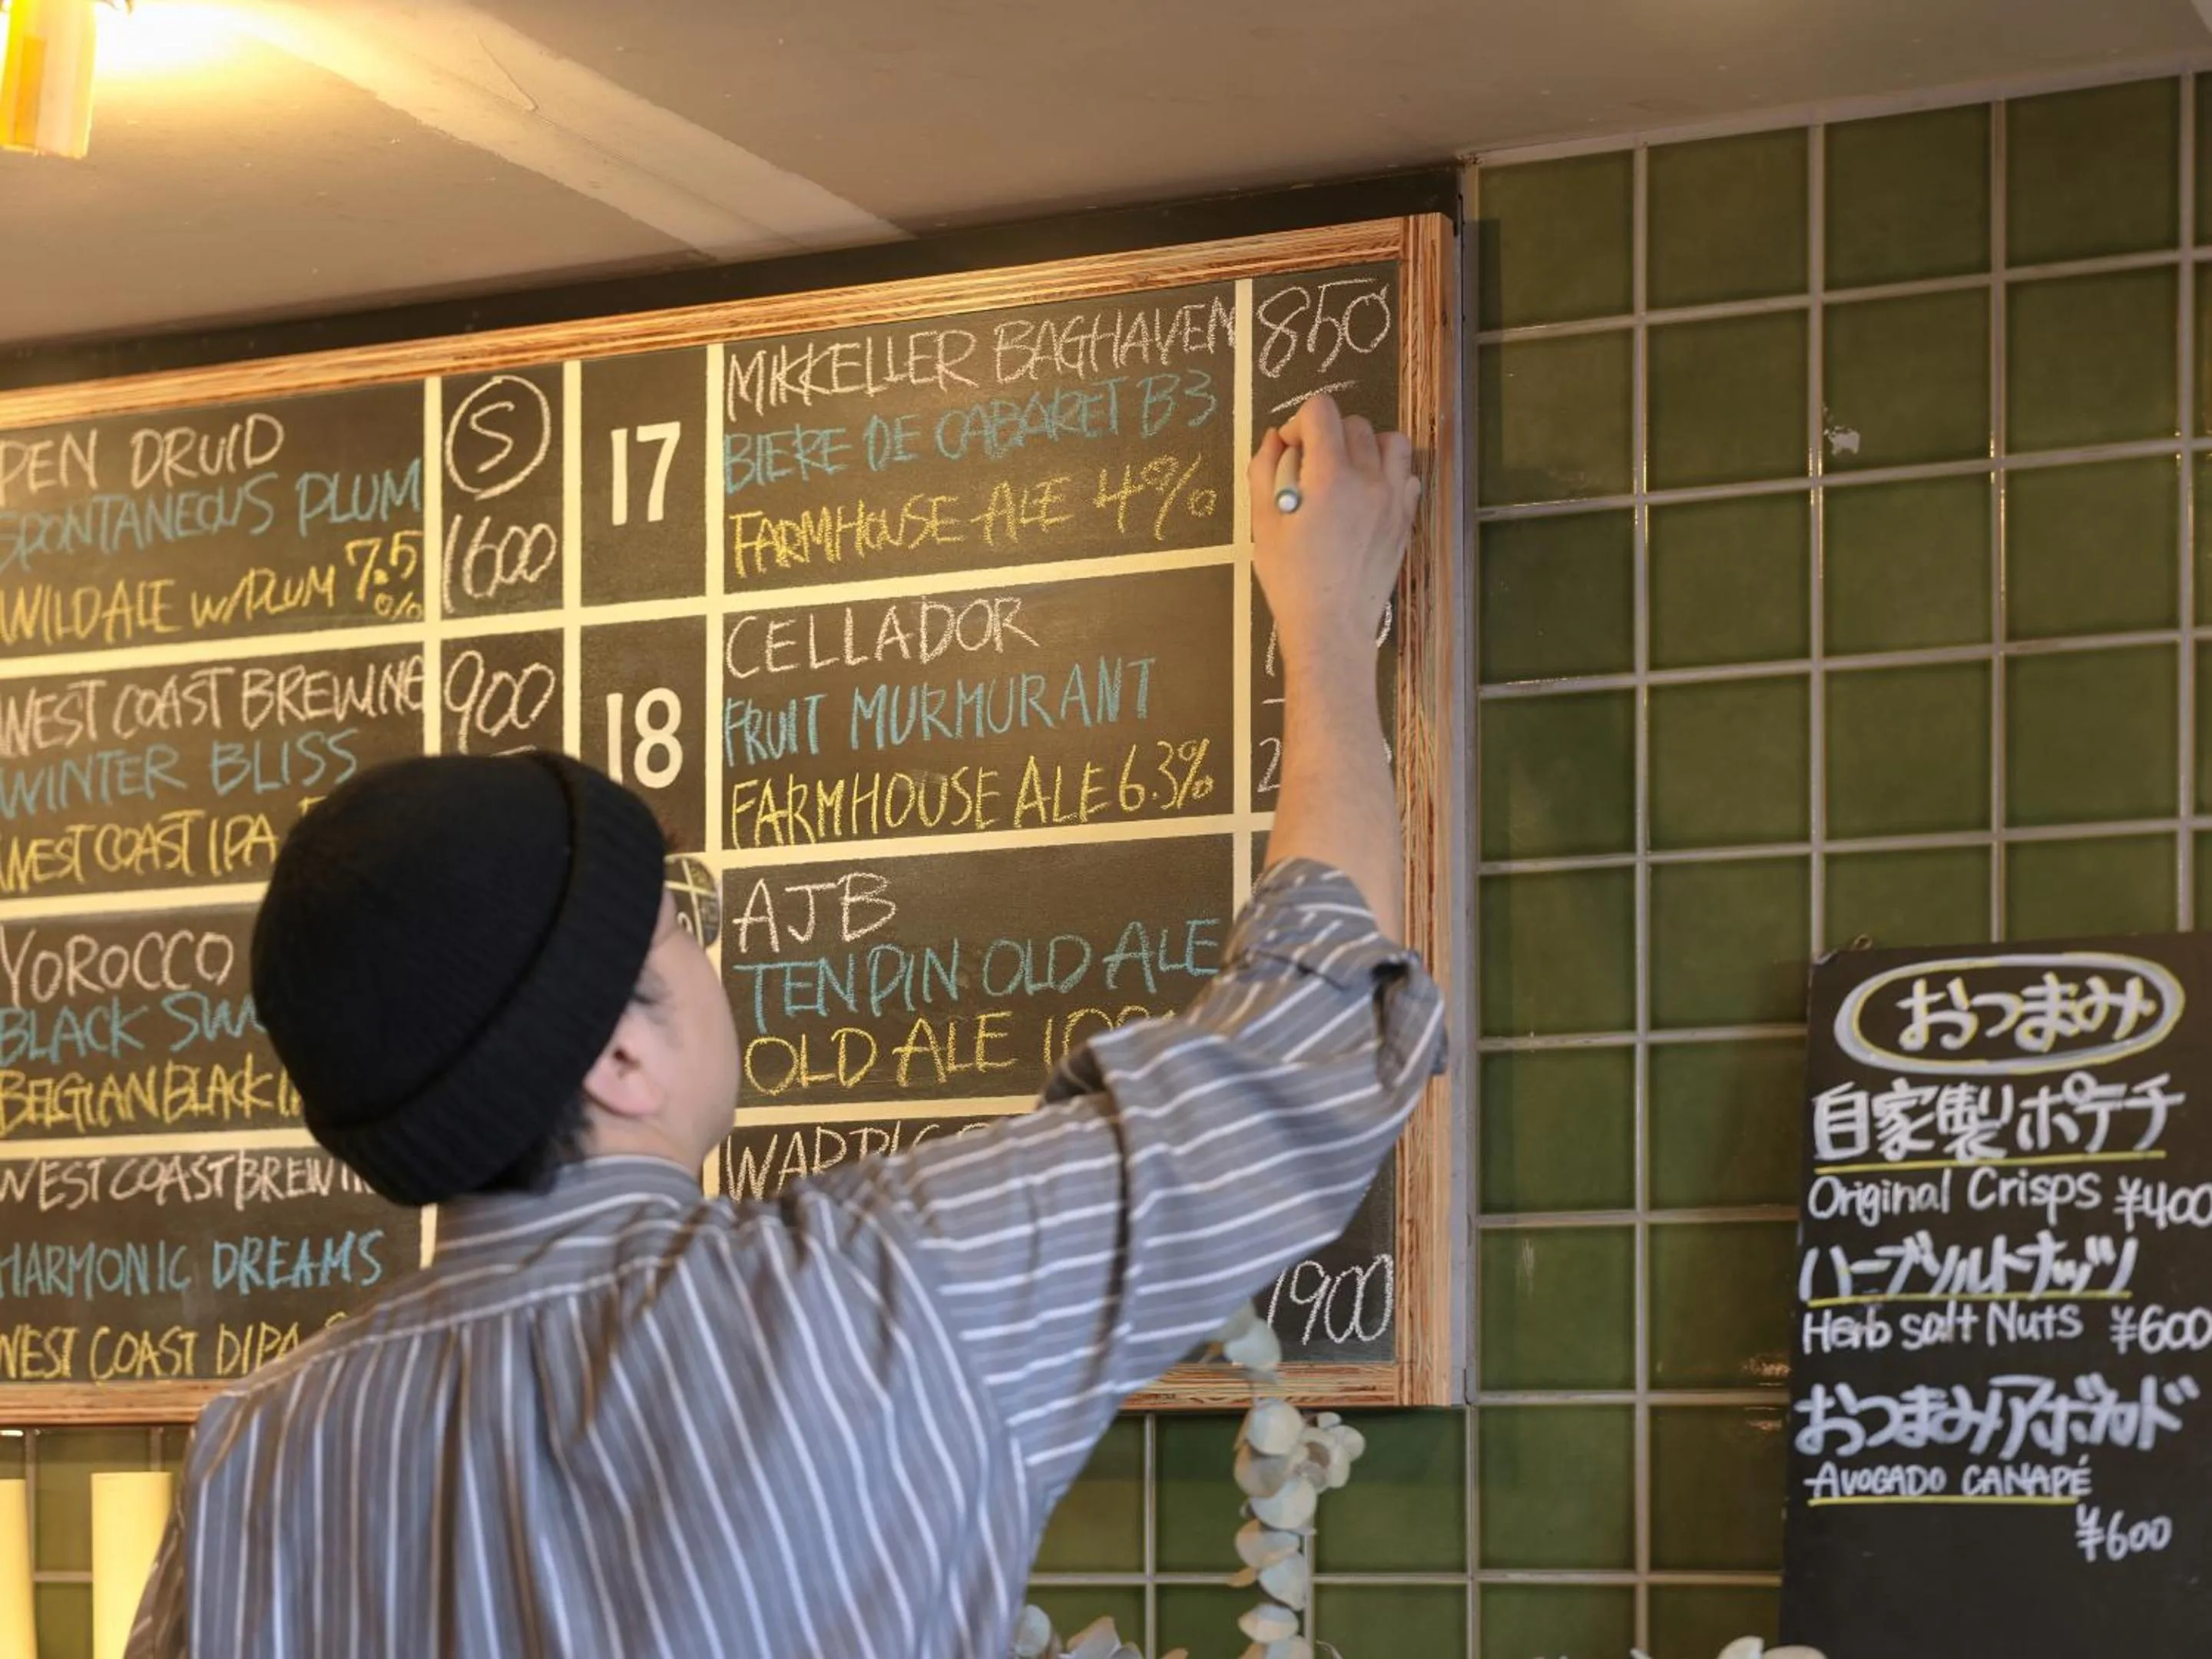 PEN DRUID
SPONTANEOUS PLUM
WILD ALE W/PLUM 7.5%
S
1600
WEST COAST BREWING
WINTER BLISS
WEST COAST IPA
900
YOROCCO
BLACK
BELGIAN BLACK
WEST COAST BREWING
HARMONIC DREAMS
WEST COAST DIPA
17
MIKKELLER BAGHAVEN
BIERE DE CABARET B3
FARMHOUSE ALE 4%
850
18
CELLADOR
FRUIT MURMURANT
FARMHOUSE ALE 6.3%
AJB
TENPIN OLD ALE
OLD ALE
1900
おつまみ
自家製ポテチ
Original Crisps ¥400
ハーブソルトナッツ
Herb salt Nuts ¥600
おつまみアボカド
AVOCADO CANAPÉ
¥600